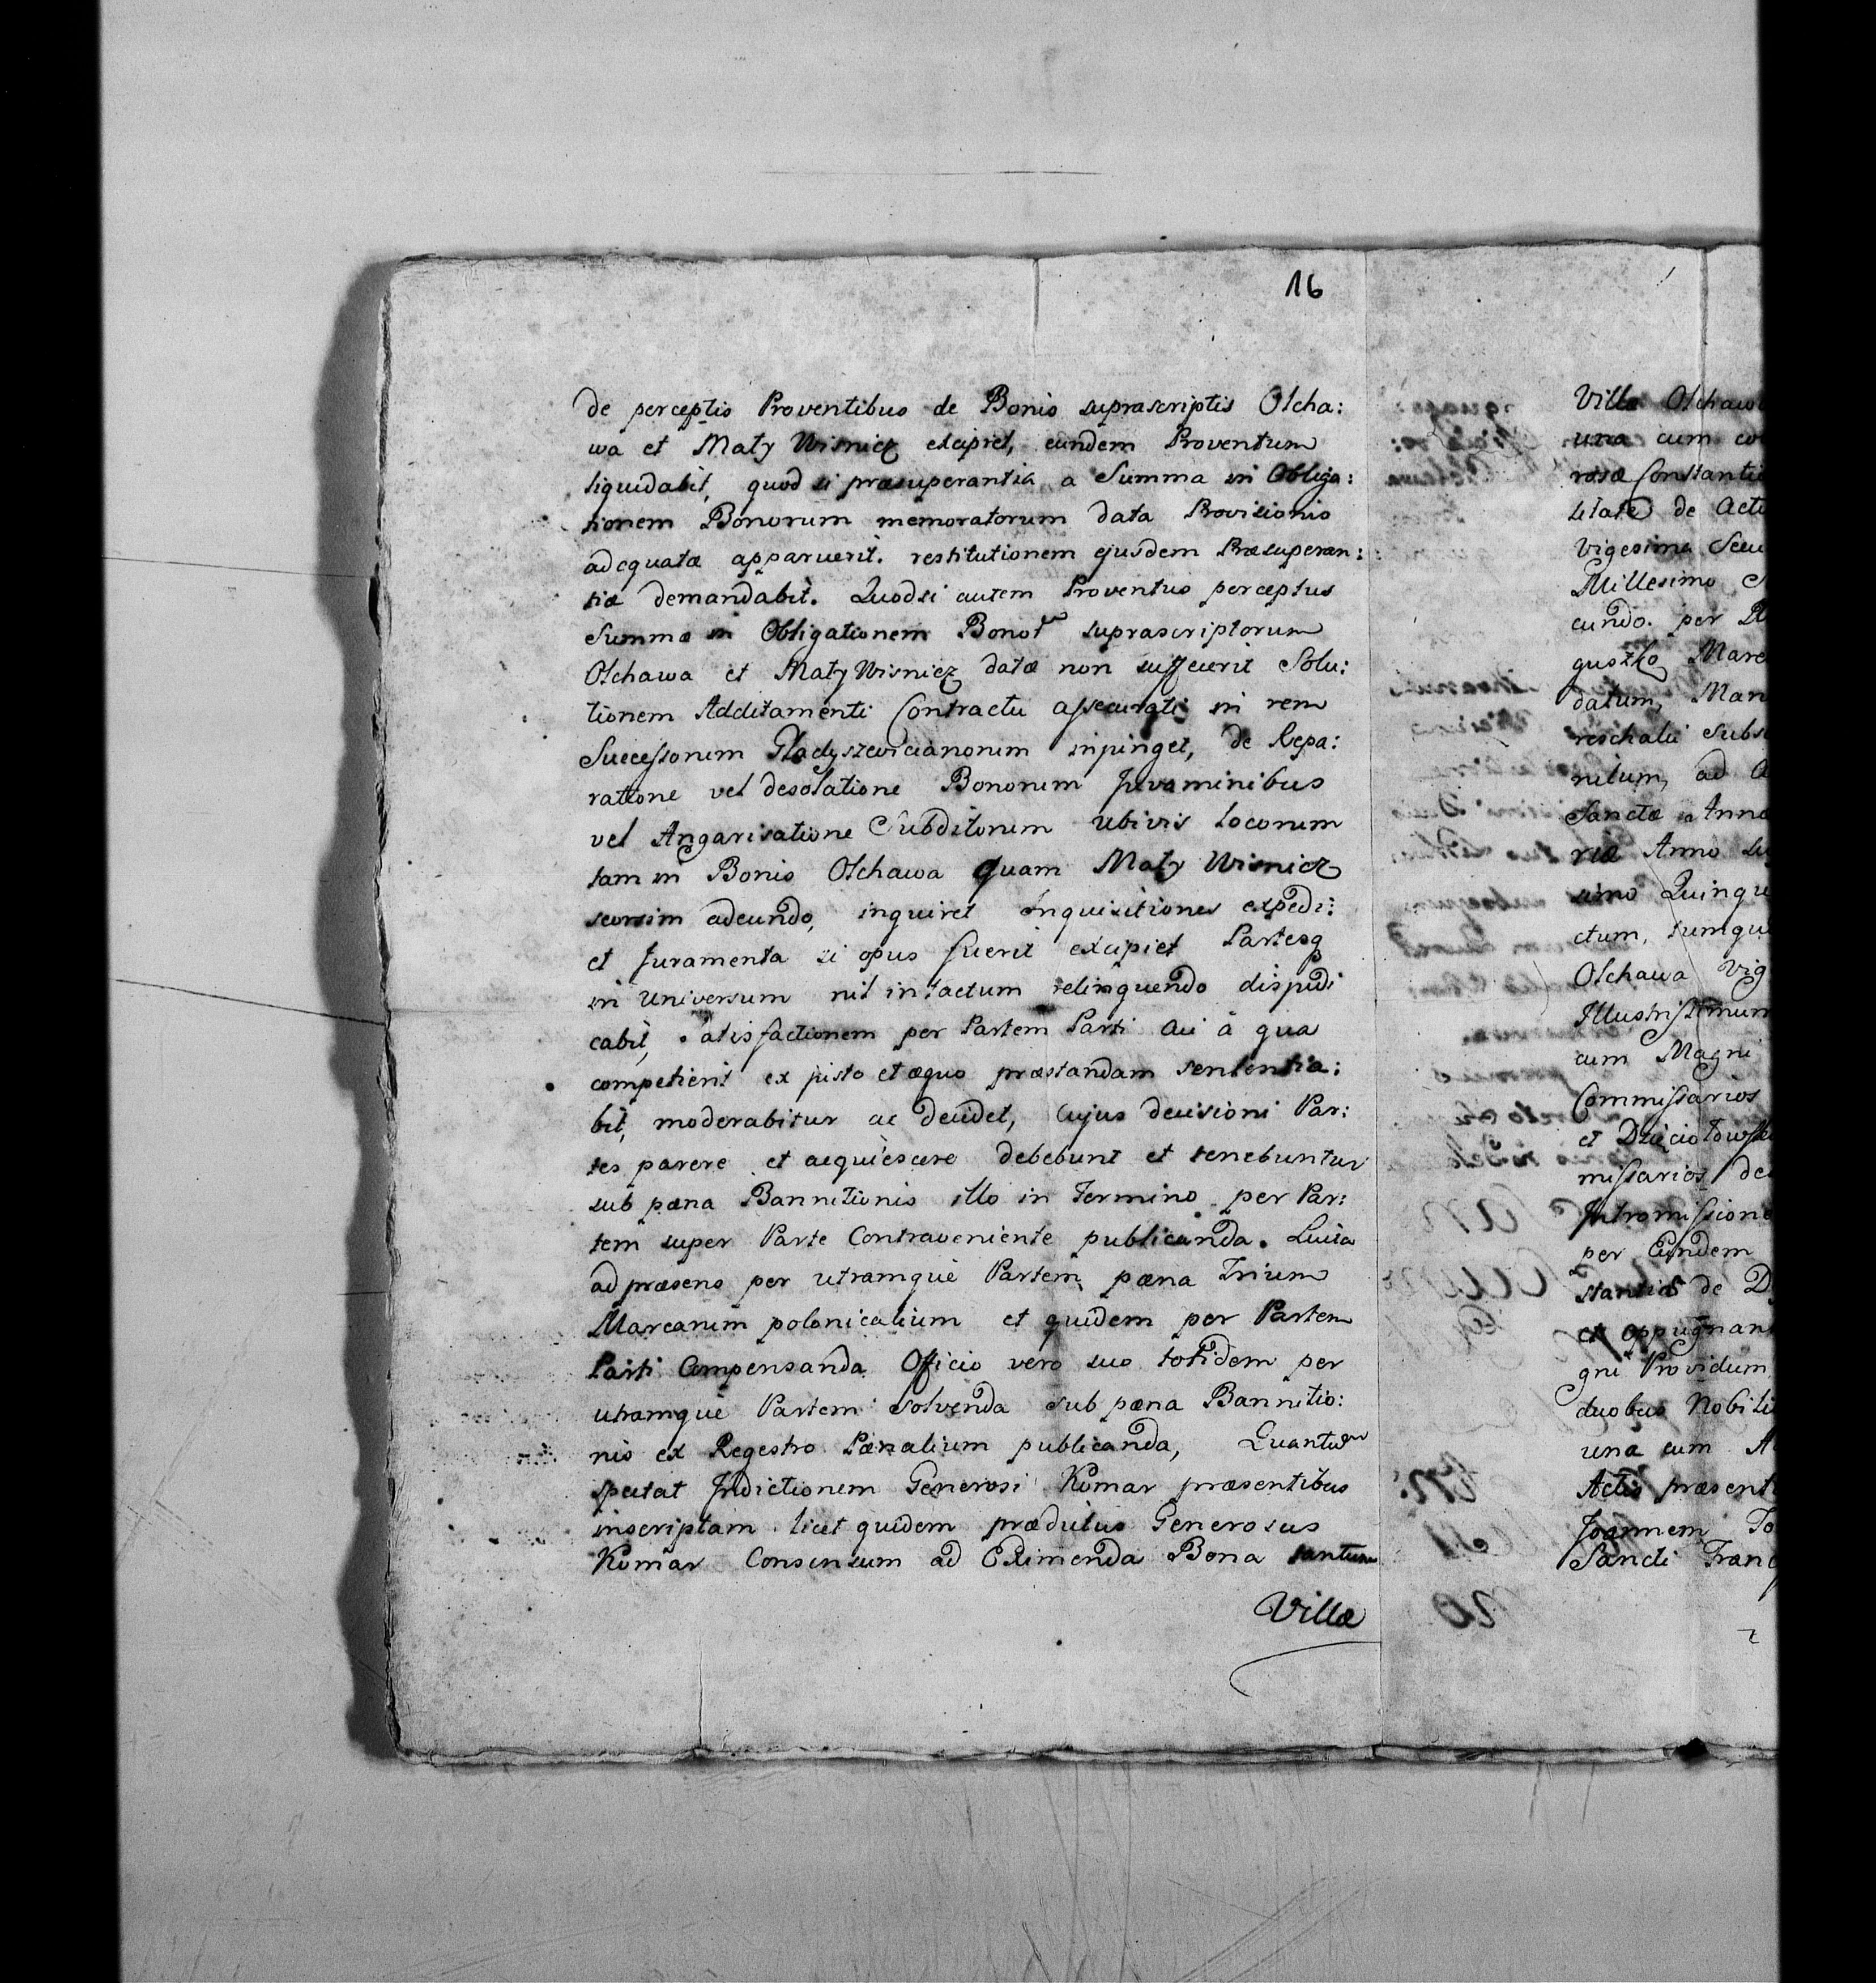 16
de perceptis Proventibus de Bonis suprascriptis Olcha:
wa et Mały Wisnicz excipiet, eundem Proventum
liquidabit, quod si præsuperantia a Summa in Obliga:
tionem Bonorum memoratorum data Provisionis
adequatæ apparuerit. restitutionem ejusdem Præsuperan:
tiæ demandabit. Quodsi autem Proventus perceptus
Summæ in Obligationem Bonor suprascriptorum
Olchawa et Mały Wisnicz datæ non suffecerit Solu:
tionem Additamenti Contractu assecurati in rem
Successorum Gladyszewicianorum injunget, de Repa:
ratione vel desolatione Bonorum Juvaminibus
vel Angarisatione Subditorum ubivis locorum
tam in Bonis Olchawa quam Mały Wisnicz
seorsim adeundo, inquiret Inquisitiones expedi:
et Juramenta si opus fuerit excipiet Partesq
in Universum nil intactum relinquendo dispudi
cabit, satisfactionem per Partem Parti cui à qua
competierit ex justo et æquo præstandam sententia:
bit, moderabitur ac decidet, Cujus decisioni Par:
tes parere et acquiescere debebunt et tenebuntur
sub pæna Bannitionis illo in Termino per Par:
tem super Parte Contraveniente publicanda. Luita
ad præsens per utramque Partem pæna Trium
Marcarum polonicalium et quidem per Partem
Parti Compensanda Officio vero suo totidem per
utramque Partem Solvenda sub pæna Bannitio:
nis ex Regestro Pænalium publicanda, Quantum
spectat Indictionem Generosi Komar præsentibus
inscriptam licet quidem prædictus Generosus
Komar Consensum ad Eximenda Bona tantum
Villæ
Villæ Olchaw
una cum co
rosæ Constanti
litate de Act
Vigesima Secu
Millesimo
cundo. per
guszko Mare
datum, Man
reschali Subs
nitum, ad
Sanctæ Annæ
riæ Anno
simo Quinqu
ctum, tumqu
Olchawa Vig
Illustrissimum
cum Magni
Commissarios
et
missarios de
Intromissione
per Eundem
stantiæ de
et oppugnan
gni Providum
duobus Nobili
una cum
Actis præsent
Joannem To
Sancti Franc